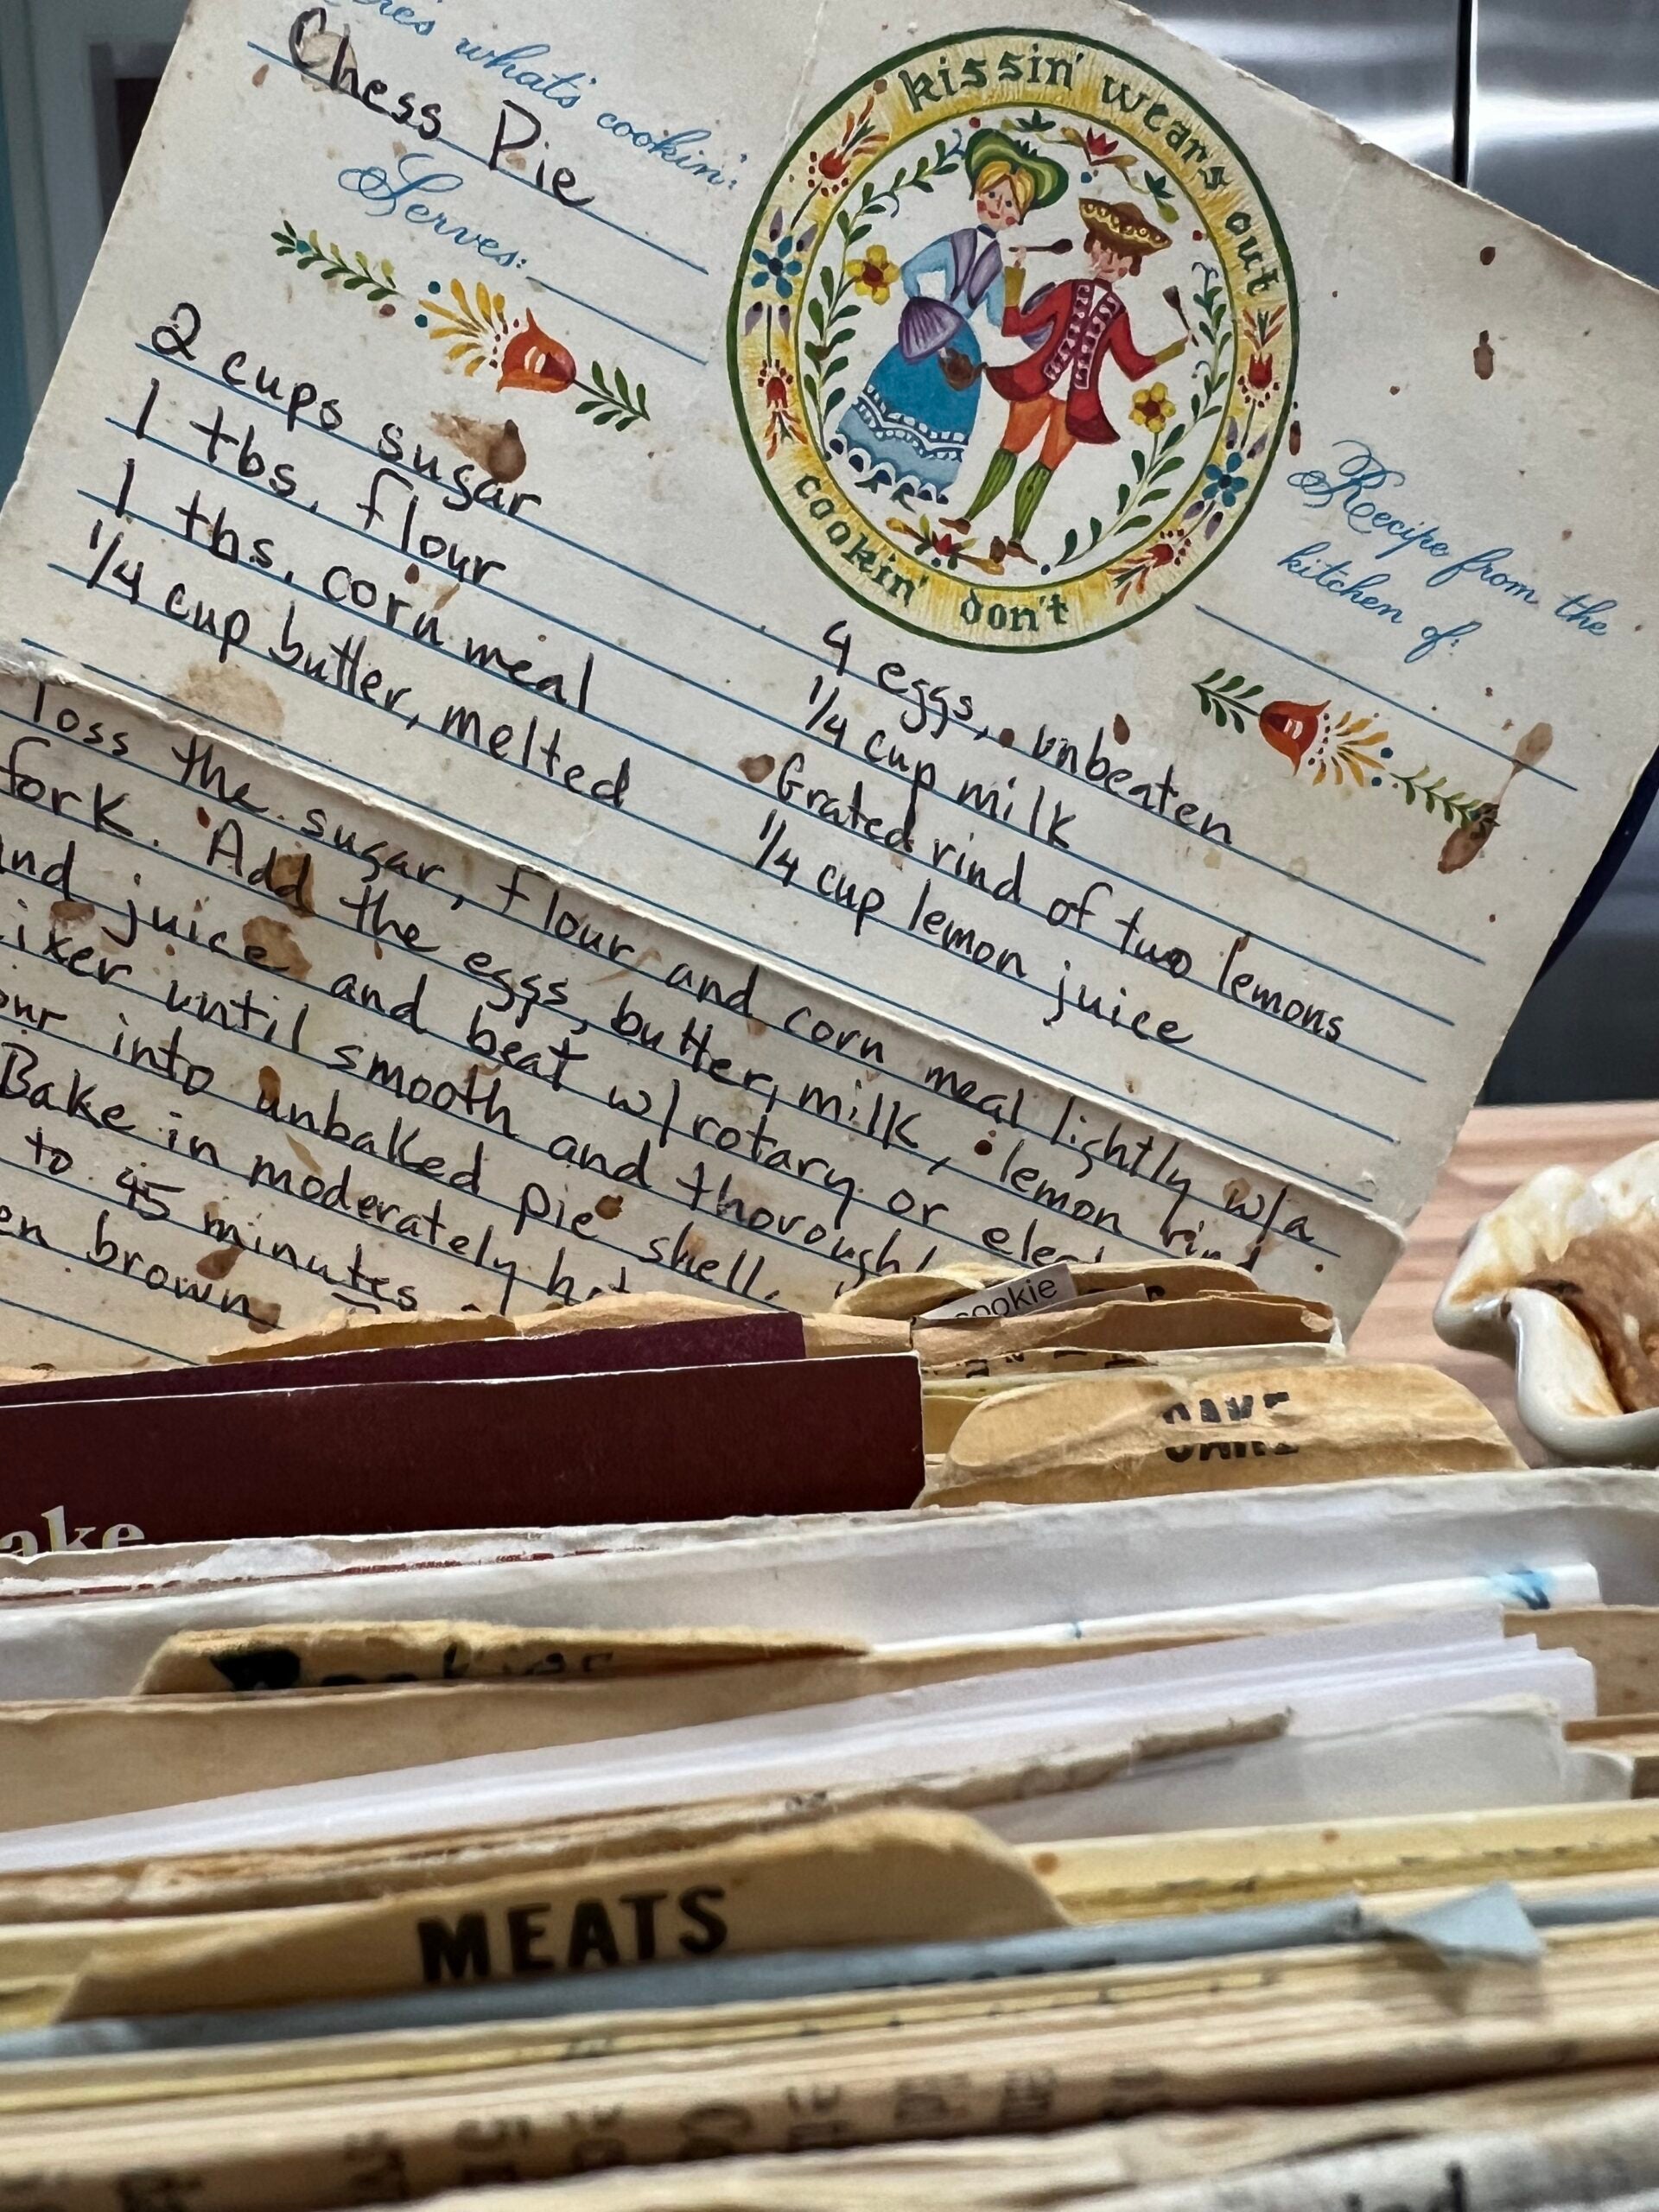 what's cookin':
Chess Pie
Serves:
kissin' wears out
cookin' don't
Recipe from the
kitchen of:
2 cups sugar
1 tbs. flour
1 tbs. corn meal
1/4 cup butter, melted
4 eggs, unbeaten
1/4 cup milk
Grated rind of two lemons
1/4 cup lemon juice
Toss the sugar, flour and corn meal lightly w/a
fork. Add the eggs, butter, milk, lemon rind
and juice and beat w/rotary or elect
ixer until smooth and thorough
our into unbaked pie shell.
Bake in moderately
to 45 minutes
en brown
cookie
CAKE
ake
MEATS